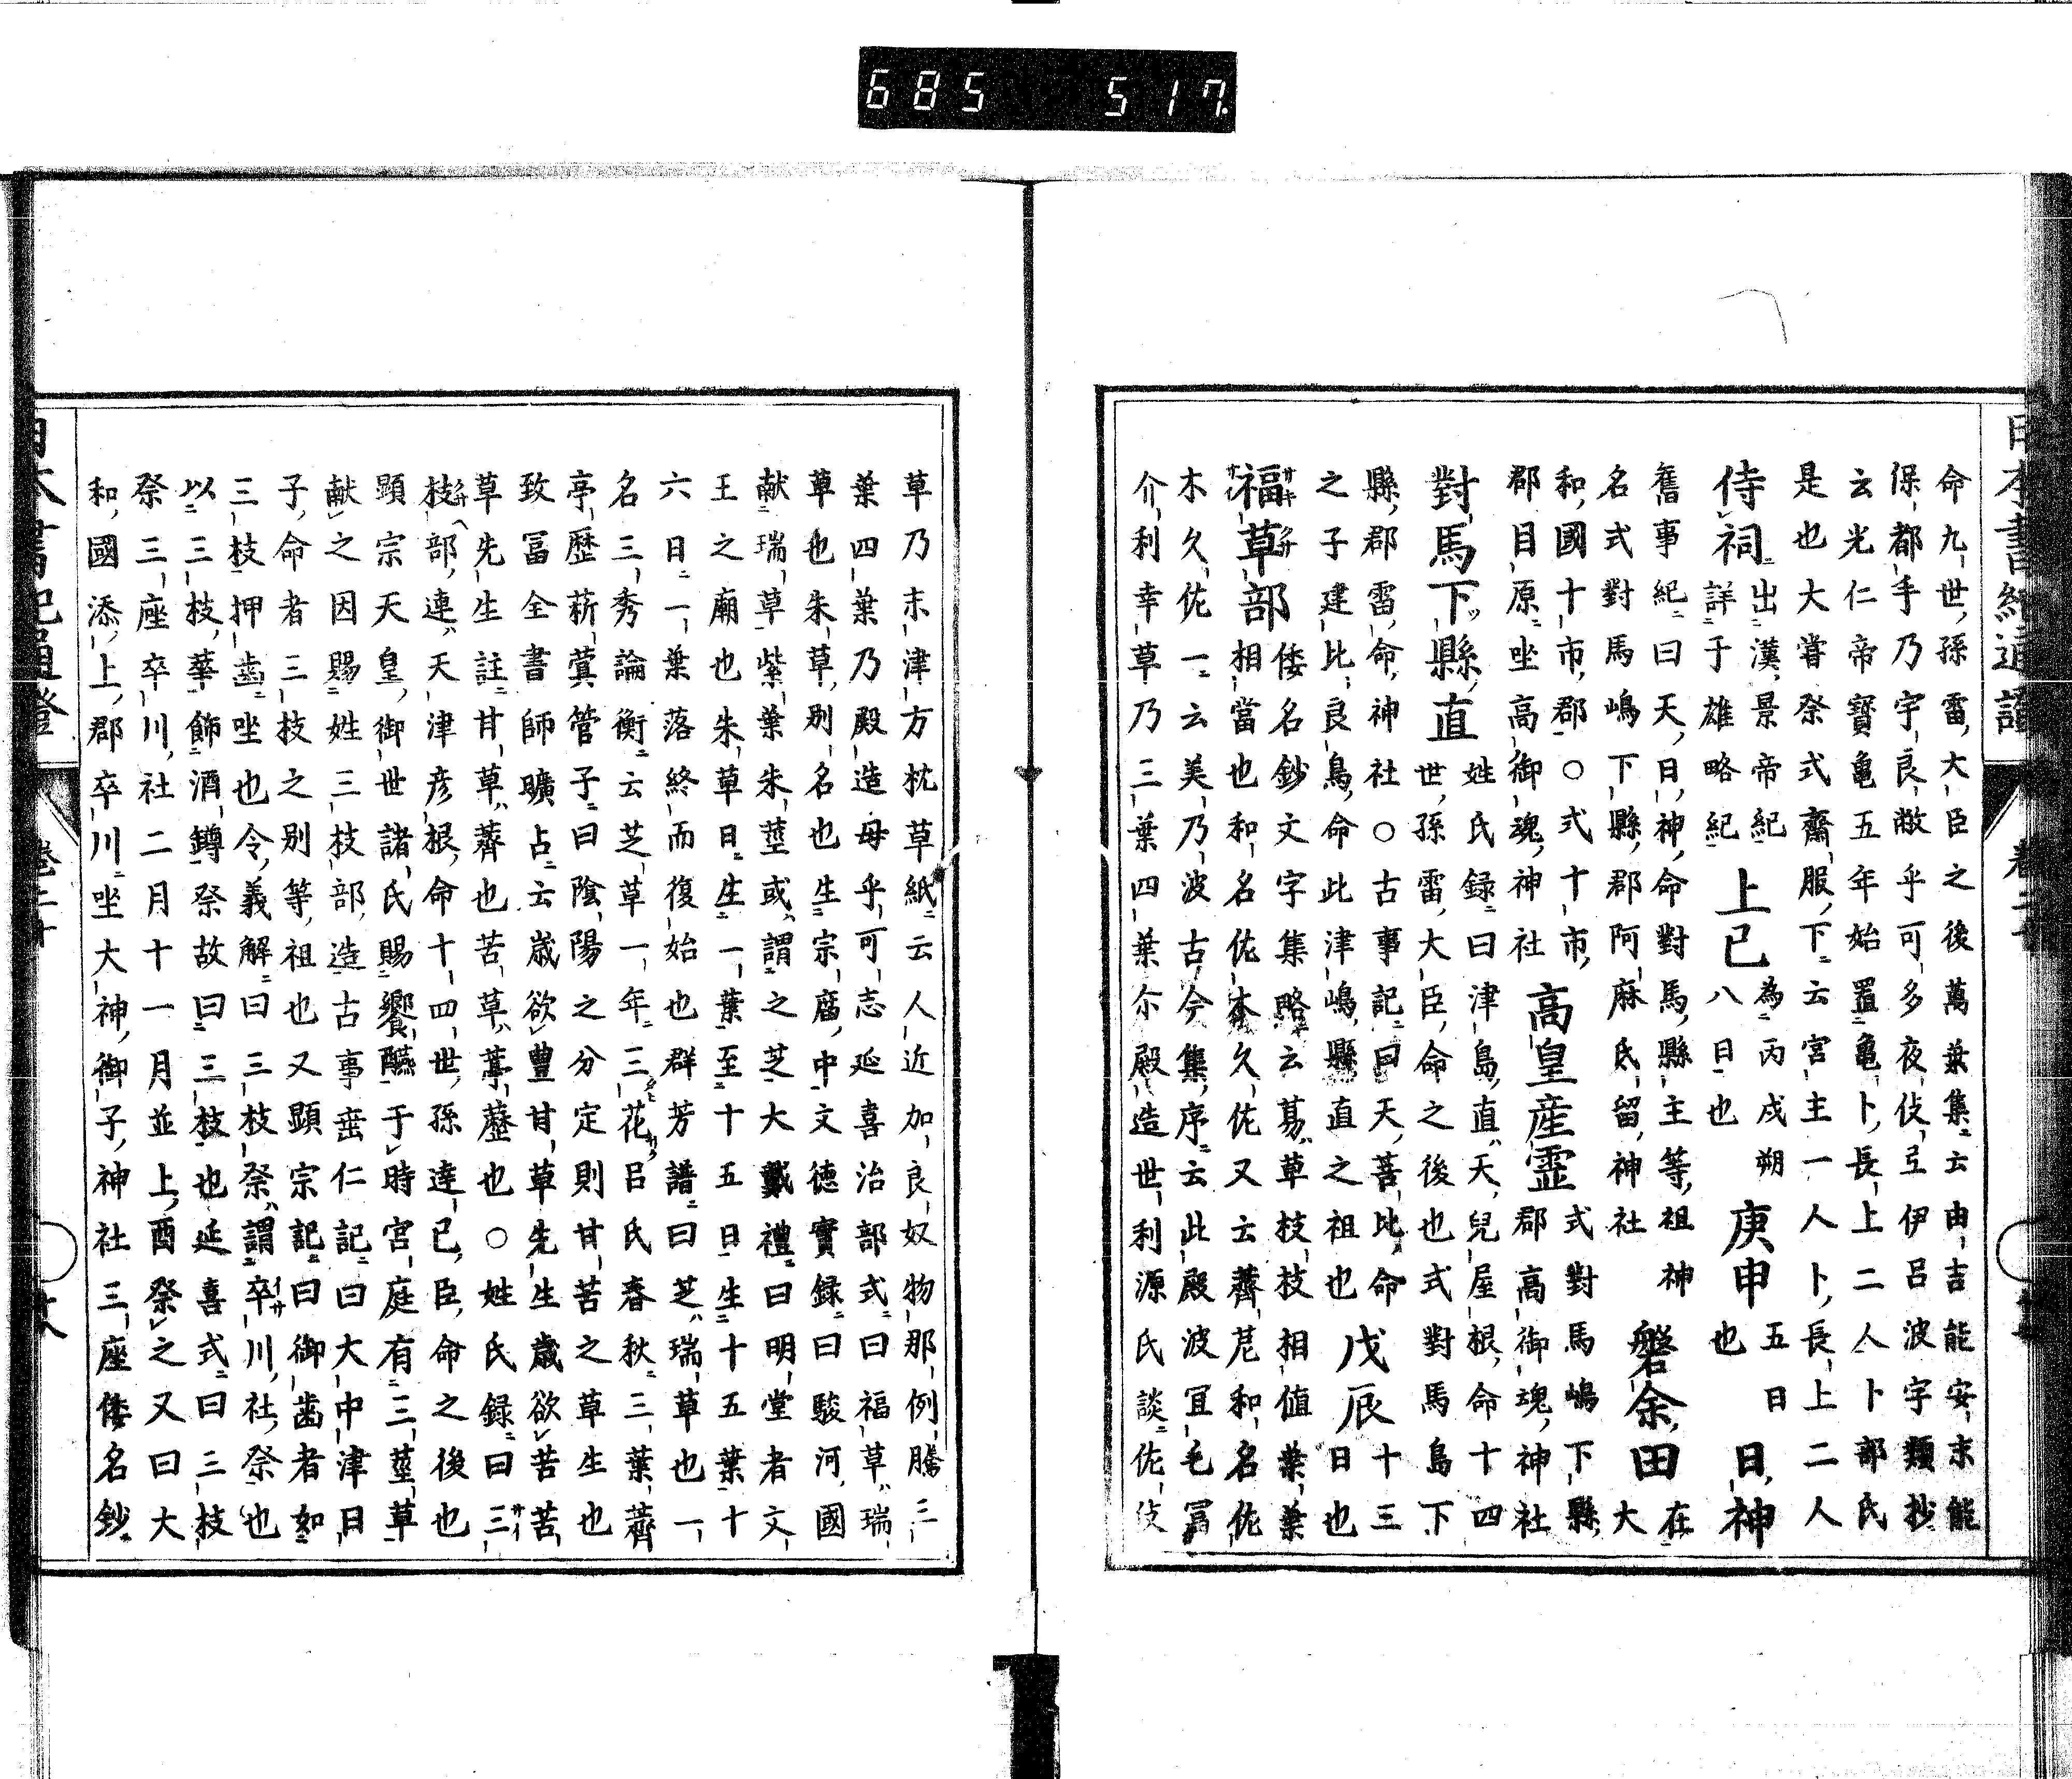 685 517
命九世孫雷大臣之後萬葉集云由吉能安末能
保都手乃宇良敝乎可多夜伎弖伊呂波字類抄
云光仁帝寶亀五年始置亀卜長上二人卜部氏
是也大嘗祭式齋服下云宮主一人卜長上二人
侍祠出漢景帝紀詳于雄略紀 上巳為丙戌朔八日也 庚申五日也 日神
舊事紀曰天日神命對馬縣主等祖神 磐余田在大
名式對馬嶋下縣郡阿麻氐留神社
和國十市郡○式十市 高皇産霊式對馬嶋下縣
郡目原坐高御魂神社 郡高御魂神社
對馬下縣直姓氏録曰津島直天兒屋根命十四
世孫雷大臣命之後也式對馬島下
縣郡雷命神社○古事記曰天菩比命 戊辰十三
之子建比良鳥命此津嶋縣直之祖也 日也
福草部倭名鈔文字集略云葛草枝枝相値葉葉
相當也和名佐木久佐又云薺苨和名佐
木久佐一云美乃波古今集序云此殿波冝毛冨
介利幸草乃三葉四葉尓殿造世利源氏談佐伎
草乃末津方枕草紙云人近加良奴物那例騰三
葉四葉乃殿造毋乎可志延喜治部式曰福草瑞
草也朱草別名也生宗廟中文德實録曰駿河國
献瑞草紫葉朱莖或謂之芝大戴禮曰明堂者文
王之廟也朱草日生一葉至十五日生十五葉十
六日一葉落終而復始也群芳譜曰芝瑞草也一
名三秀論衡云芝草一年三花呂氏春秋三葉薺
亭歴菥蓂管子曰陰陽之分定則甘苦之草生也
致冨全書師曠占云歳欲豊甘草先生歳欲苦苦
草先生註甘草薺也苦草葶藶也○姓氏録曰三
枝部連天津彦根命十四世孫達已臣命之後也
顕宗天皇御世諸氏賜饗醼于時宮庭有三莖草
献之因賜姓三枝部造古事埀仁記曰大中津日
子命者三枝之別等祖也又顕宗記曰御歯者如
三枝押歯坐也令義解曰三枝祭謂卒川社祭也
以三枝華飾酒罇祭故曰三枝也延喜式曰三枝
祭三座卒川社二月十一月並上酉祭之又曰大
和國添上郡卒川坐大神御子神社三座倭名鈔